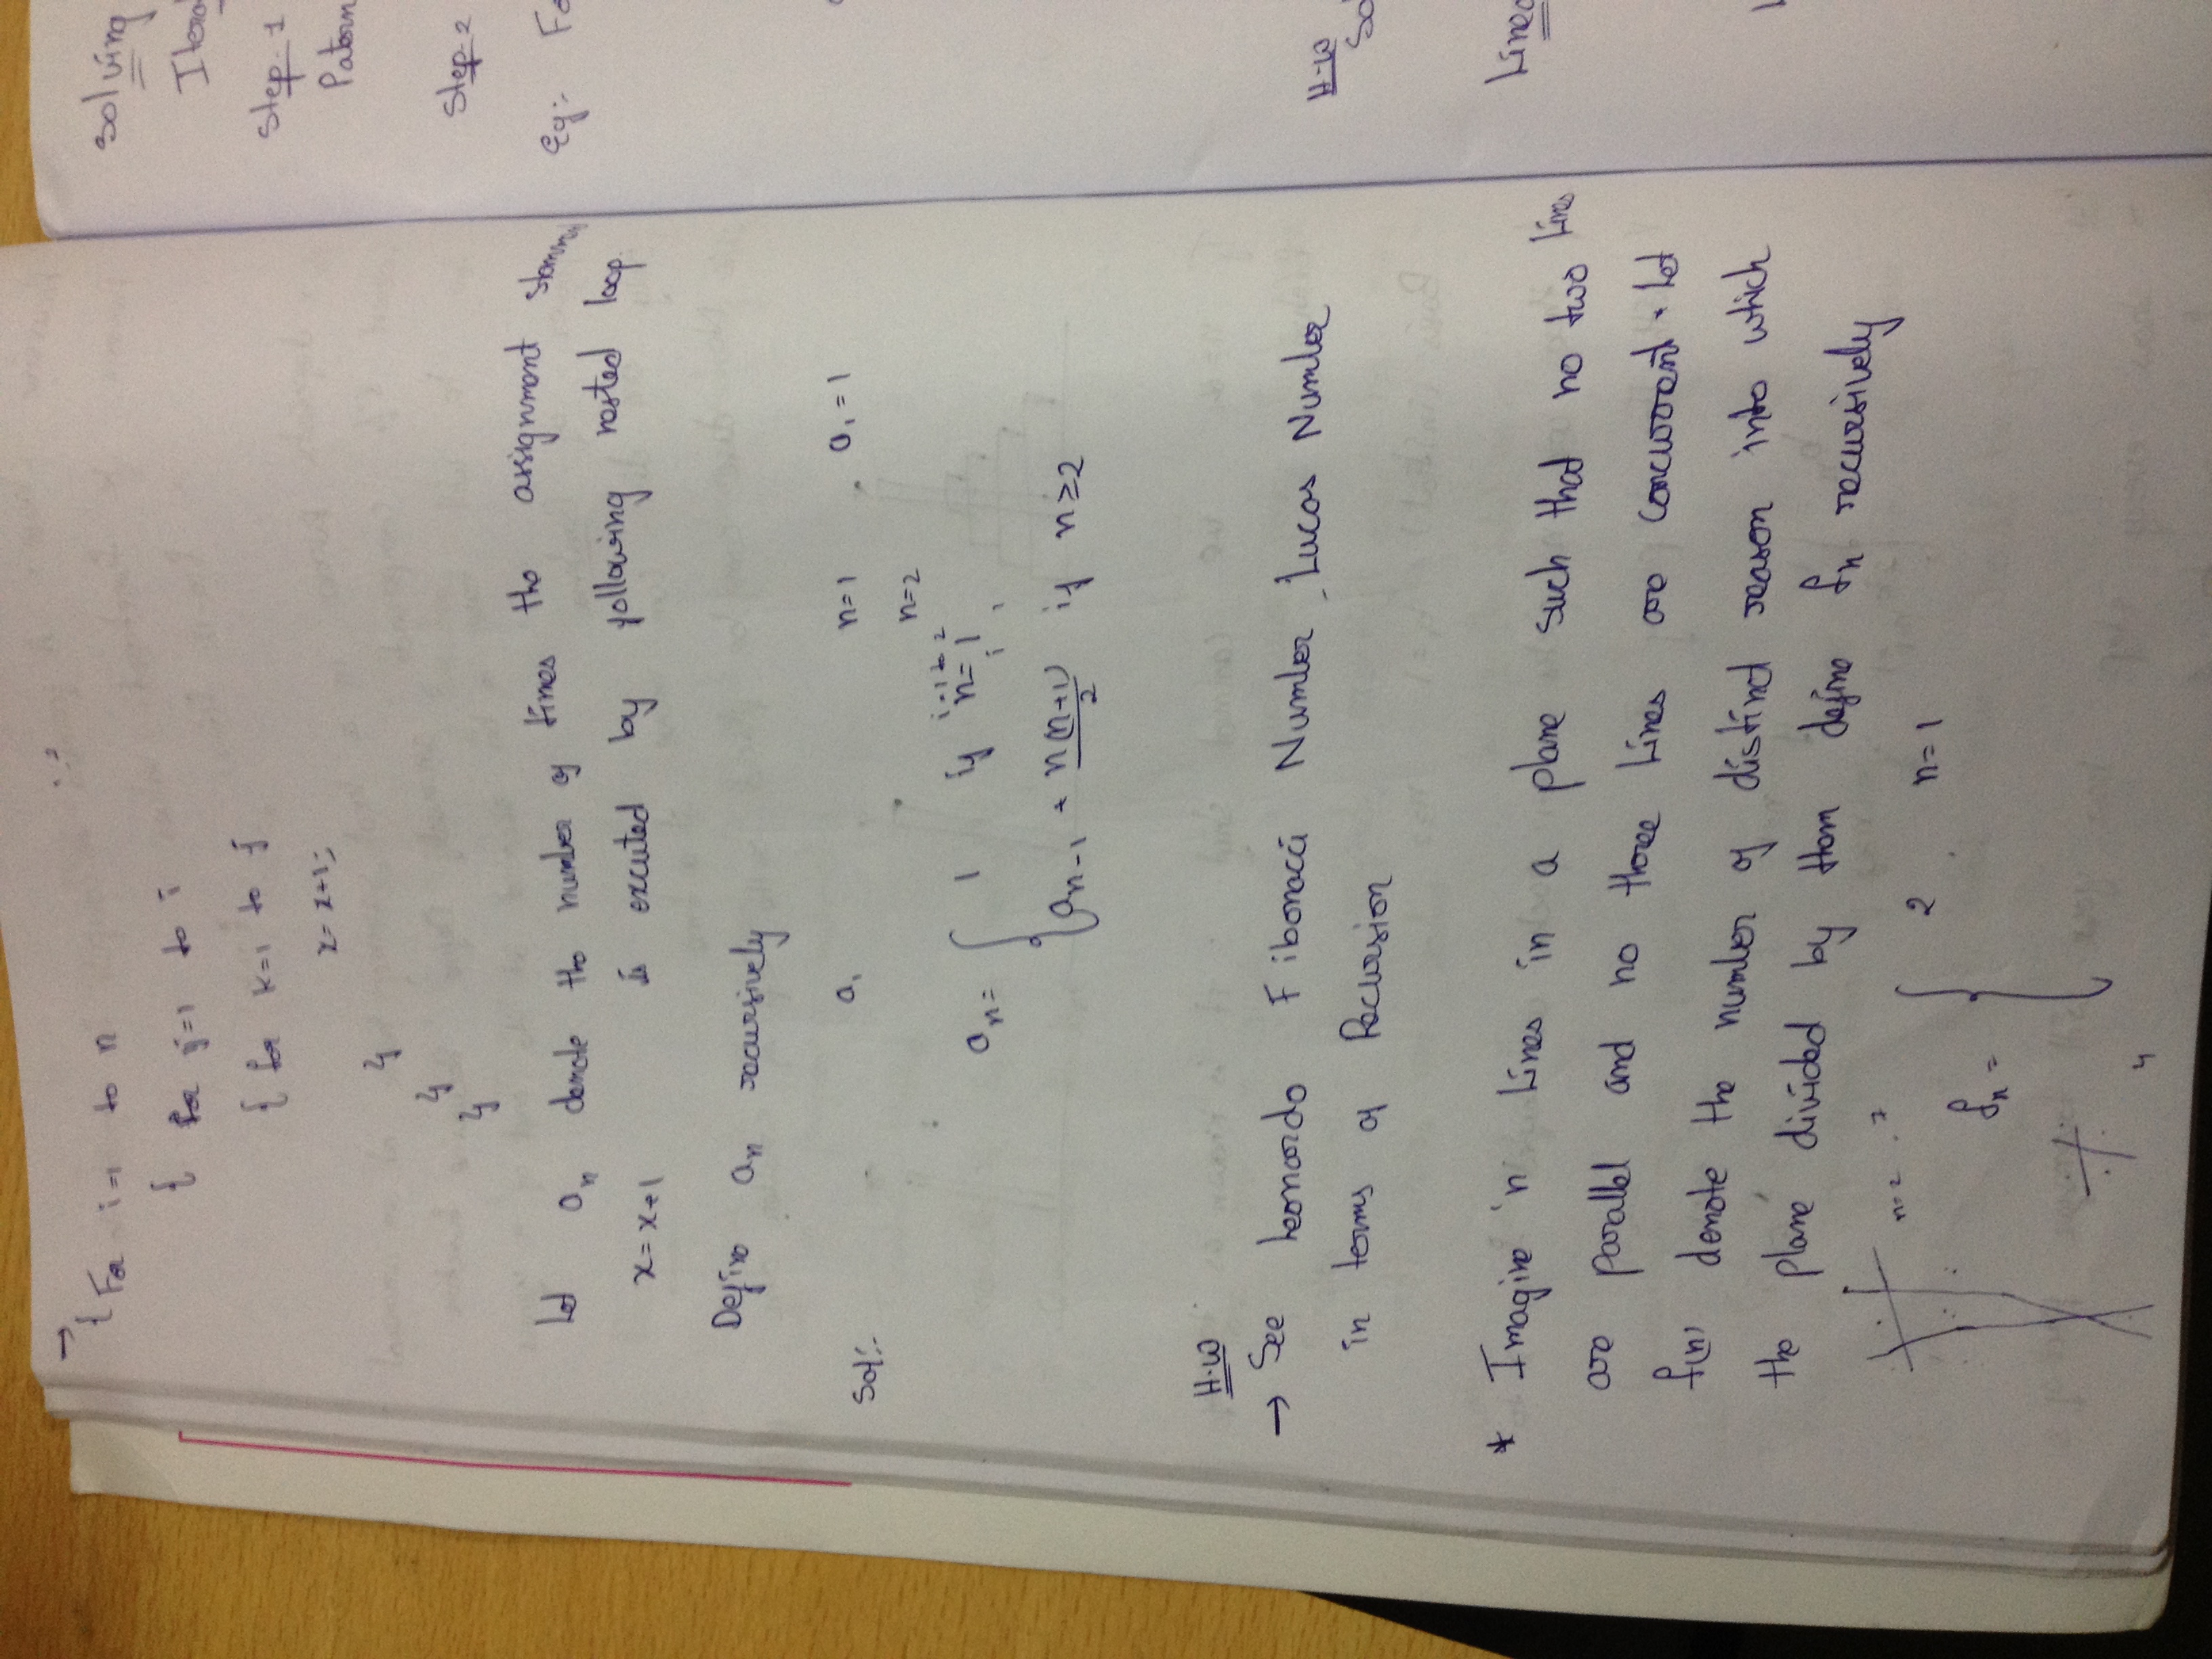 → { For i=1 to n
{ for j=1 to i
{ for k=1 to j
x=x+1;
}
}
}
Let an denote the number of times the assignment
x=x+1 is executed by following nested loop.
Define an recursively
Sol:- a1 n=1 a1=1
n=2
i=1 to 2
an= { 1 if n=1,
an-1 + n(n+1)/2 if n≥2
H.W
→ See Leonardo Fibonacci Number, Lucas Number
in terms of Recursion
* Imagine 'n' Lines in a plane such that no two Lines
are parallel and no three Lines are concurrent. Let
f(n) denote the number of distinct reason into which
the plane divided by them define fn recursively
n=2
fn = { 2 n=1
4
Solving
Step-1
Step-2
Eg:-
H-W